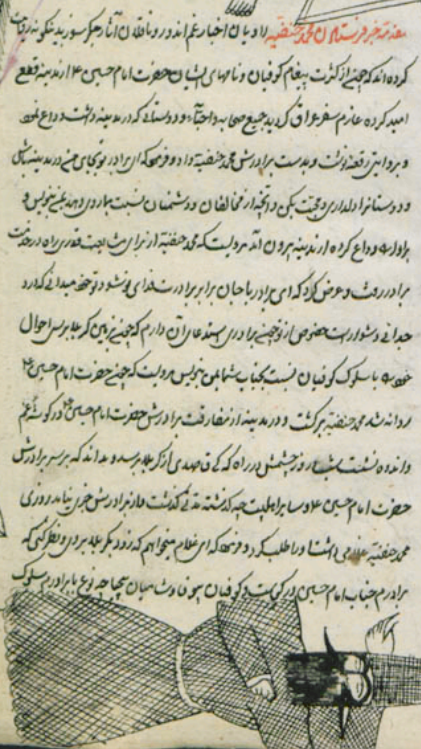 مقدمه خبر فرستادن محمد حنفیه راویان اخبار غم اندوز و ناقلان آثار جگرسوز بدینگونه روایت
کرده اند که چون از کثرت پیغام کوفیان و نامهای ایشان حضرت امام حسین ع از مدینه قطع
امید کرده عازم سفر عراق گردید جمیع صحابه و احبا و دوستان که در مدینه داشت وداع نمود
و بروایتی رقعه نوشت و بدست برادرش محمد حنفیه داد و فرمود که ای برادر تو بجای من در مدینه باش
و دوستانرا دلداری و محبت بکن و آنچه از مخالفان و دشمنان نسبت بما روی دهد بمن بنویس و
برادر را وداع کرده از مدینه بیرون آمد مرویست که محمد حنفیه از برای مشایعت قدری راه در خدمت
برادر رفت و عرض کرد که ای برادر با جان برابر برادرت فدای تو شود تو خود میدانی که درد
جدائی دشوار است خصوص از تو چنین برادری استدعا از آن دارم که چون بزمین کربلا برسی احوال
خود را با سلوک کوفیان نسبت بجناب شما بمن بنویس مرویست که چون حضرت امام حسین ع
روانه شد محمد حنفیه برگشت و در مدینه از مفارقت برادرش حضرت امام حسین ع در گوشه غم
و اندوه نشست شب و روز چشمش در راه که کی قاصدی از کربلا برسد و بداند که بر سر برادرش
حضرت امام حسین ع و سایر اهلبیت چه گذشته مدتی گذشت و از برادرش خبری نیامد روزی
محمد حنفیه غلامی داشت او را طلب کرد و فرمود که ای غلام میخواهم که زود بکربلا بروی و نظر کنی که
برادرم جناب امام حسین در کجاست و کوفیان بیوفا و شامیان بیحیا چه نوع با برادرم سلوک